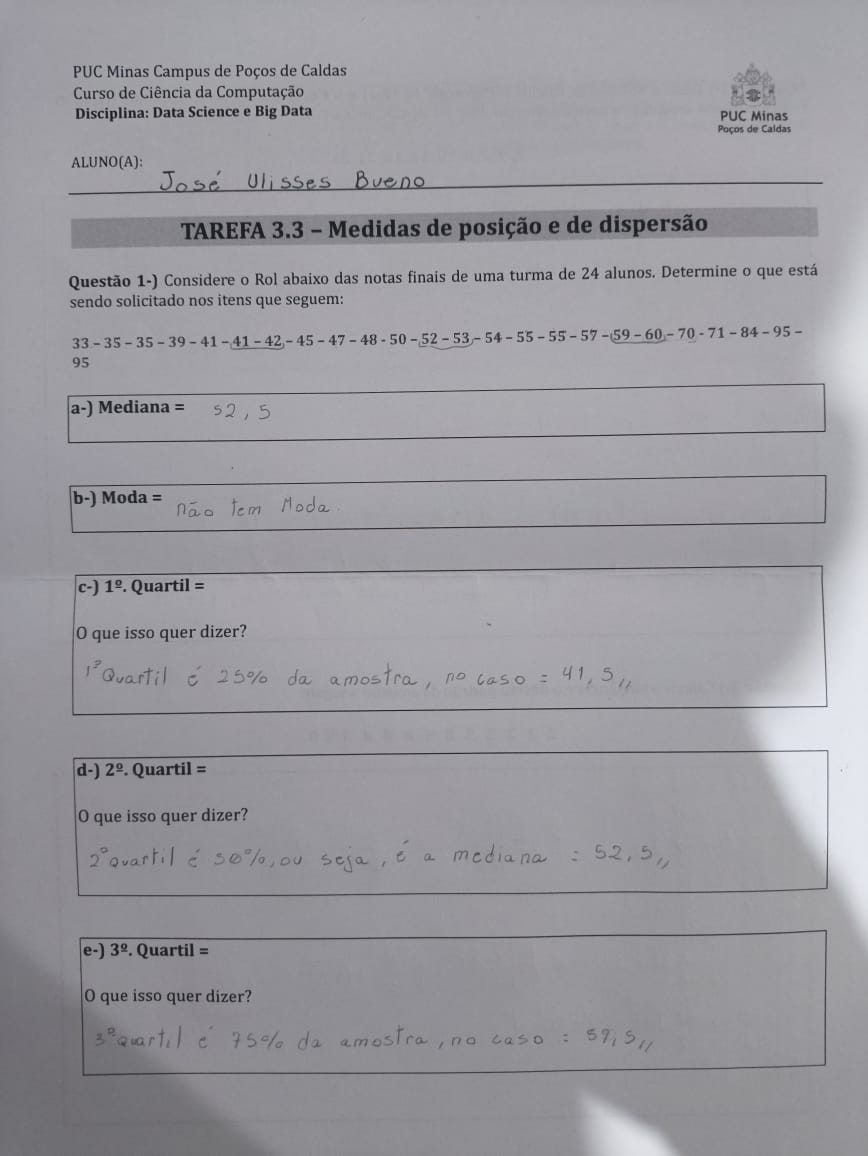 PUC Minas Campus de Poços de Caldas
Curso de Ciência da Computação
Disciplina: Data Science e Big Data
PUC Minas
Poços de Caldas
ALUNO(A):
José Ulisses Bueno
TAREFA 3.3 – Medidas de posição e de dispersão
Questão 1-) Considere o Rol abaixo das notas finais de uma turma de 24 alunos. Determine o que está
sendo solicitado nos itens que seguem:
33 – 35 – 35 – 39 – 41 – 41 – 42 – 45 – 47 – 48 - 50 – 52 – 53 – 54 – 55 – 55 – 57 – 59 – 60 – 70 - 71 – 84 – 95 –
95
a-) Mediana = 52,5
b-) Moda = não tem Moda.
c-) 1º. Quartil =
O que isso quer dizer?
1º Quartil é 25% da amostra, no caso = 41,5,,
d-) 2º. Quartil =
O que isso quer dizer?
2º Quartil é 50%, ou seja, é a mediana : 52,5,,
e-) 3º. Quartil =
O que isso quer dizer?
3º Quartil é 75% da amostra, no caso : 59,5,,